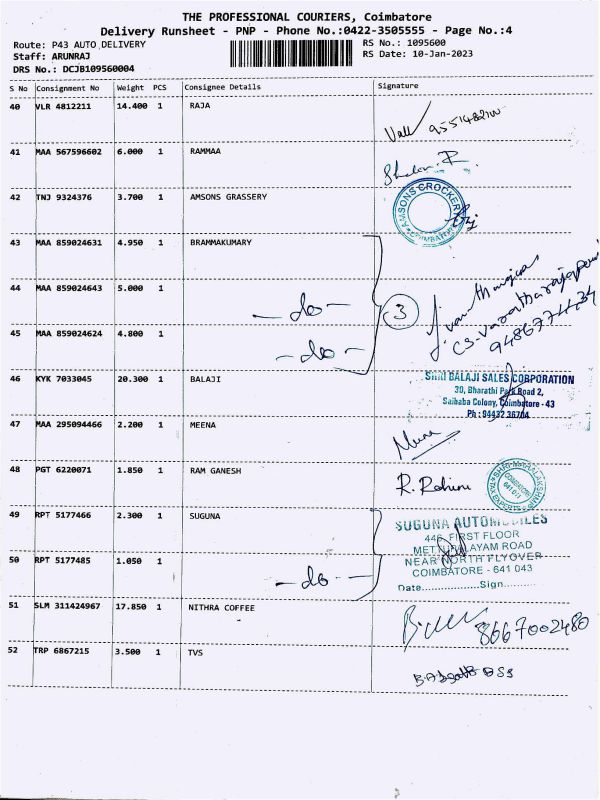 THE PROFESSIONAL COURIERS, Coimbatore
Delivery Runsheet - PNP - Phone No.:0422-3505555 - Page No.:4
Route: P43 AUTO DELIVERY
RS No.: 1095600
Staff: ARUNRAJ
RS Date: 10-Jan-2023
DRS No.: DCJB109560004
S No Consignment No Weight PCS Consignee Details Signature
40 VLR 4812211 14.400 1 RAJA
41 MAA 567596602 6.000 1 RAMMAA
42 TNJ 9324376 3.700 1 AMSONS GRASSERY
AMSONS CROCKERY
COIMBATORE
43 MAA 859024631 4.950 1 BRAMMAKUMARY
44 MAA 859024643 5.000 1 - do - 3
45 MAA 859024624 4.800 1 - do -
46 KYK 7033045 20.300 1 BALAJI
SHRI BALAJI SALES CORPORATION
30, Bharathi Park Road 2,
Saibaba Colony, Coimbatore - 43
Ph : 94432 36704
47 MAA 295094466 2.200 1 MEENA
48 PGT 6220071 1.850 1 RAM GANESH R. Rohini
49 RPT 5177466 2.300 1 SUGUNA
SUGUNA AUTOMOBILES
446, FIRST FLOOR
METTUPALAYAM ROAD
NEAR NORTH FLYOVER
COIMBATORE - 641 043
Date..................Sign............
50 RPT 5177485 1.050 1 - do -
51 SLM 311424967 17.850 1 NITHRA COFFEE 8667002480
52 TRP 6867215 3.500 1 TVS